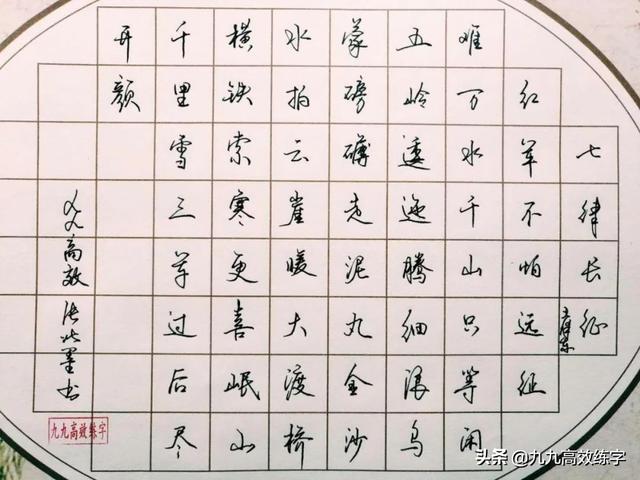 七律长征
毛泽东
红军不怕远征
难万水千山只等闲
五岭逶迤腾细浪乌
蒙磅礴走泥丸金沙
水拍云崖暖大渡桥
横铁索寒更喜岷山
千里雪三军过后尽
开颜
九九高效 张墨书
九九高效练字
头条 @九九高效练字